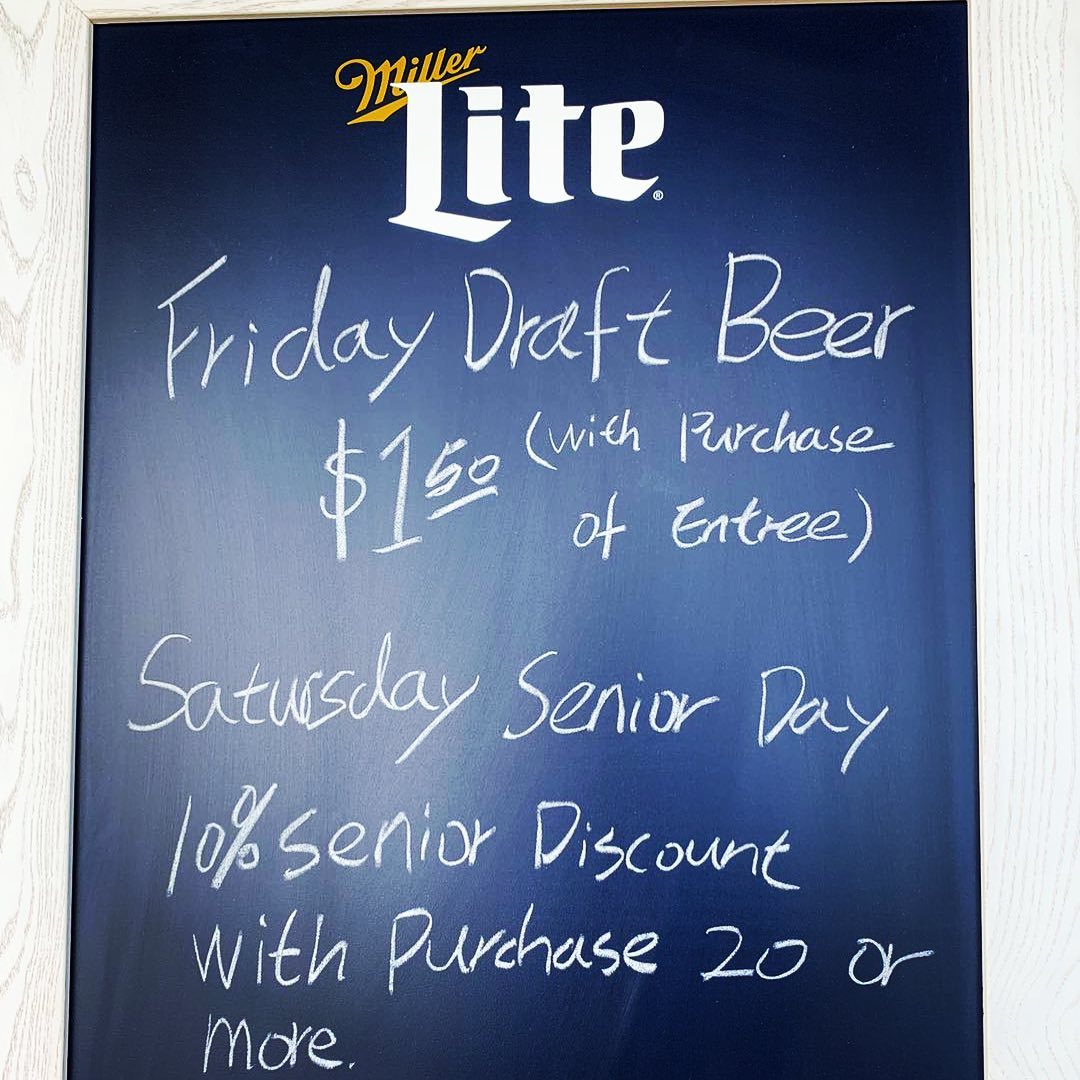 Miller
Lite®
Friday Draft Beer
$1 50 (with Purchase
of Entree)
Satursday Senior Day
10% senior Discount
with Purchase 20 or
more.